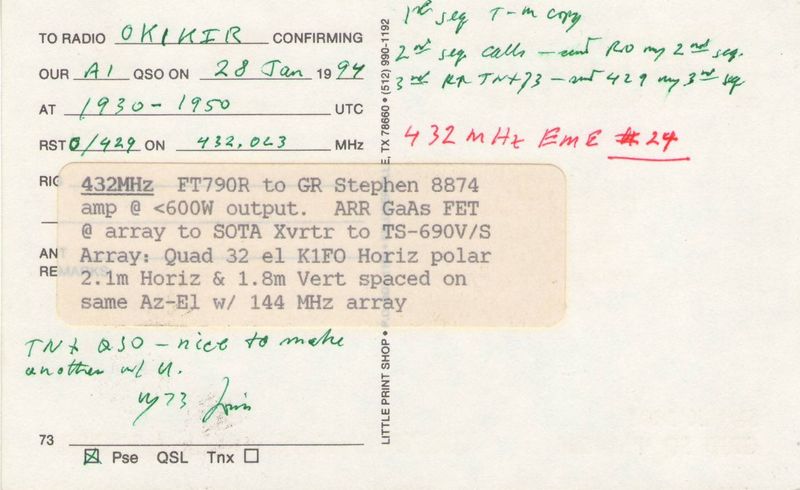 TO RADIO OK1KIR CONFIRMING
OUR A1 QSO ON 28 Jan 1994
AT 1930-1950 UTC
RST O/429 ON 432.023 MHz
RIG
432MHz FT790R to GR Stephen 8874
amp @ <600W output. ARR GaAs FET
@ array to SOTA Xvrtr to TS-690V/S
Array: Quad 32 el K1FO Horiz polar
2.1m Horiz & 1.8m Vert spaced on
same Az-El w/ 144 MHz array
ANT
REMARKS
TNX QSO - nice to make
another w/ U.
Vy 73
73
☒ Pse QSL Tnx ☐
LITTLE PRINT SHOP • E, TX 78660 • (512) 990-1192
1st seq T-M copy
2nd seq calls - sent RO my 2nd seq.
3rd RR TNX 73 - sent 429 my 3rd seq
432 MHz EME #24